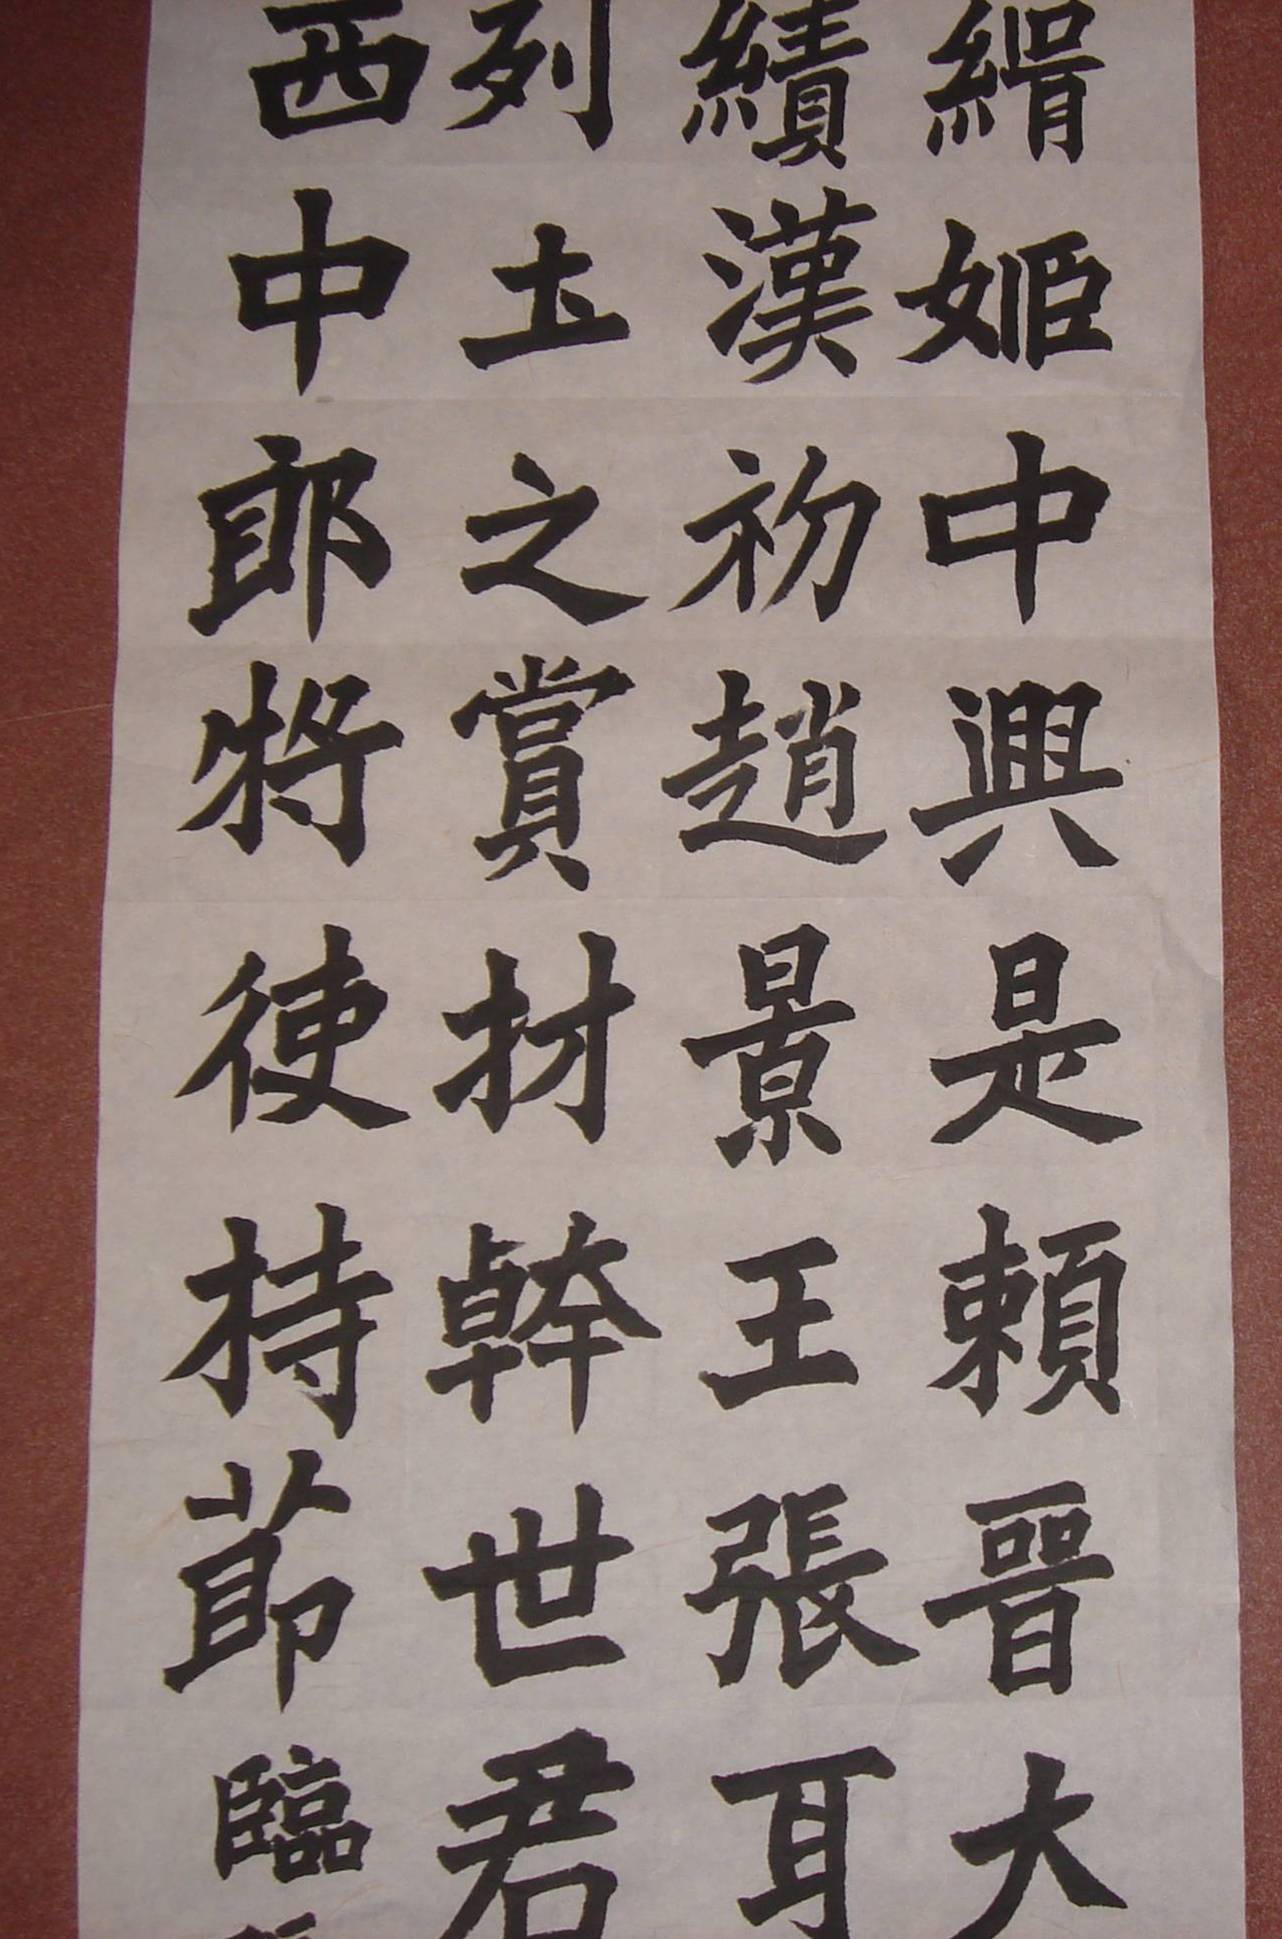 緝姬中興是賴晉大
績漢初趙景王張耳
列土之賞材幹世君
西中郎將使持節臨